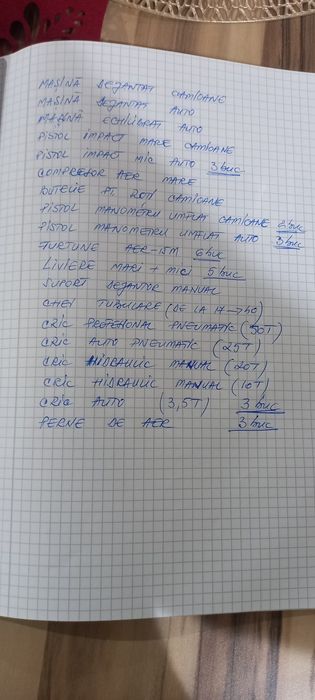 MAȘINĂ DEJANTAT CAMIOANE
MAȘINĂ DEJANTAT AUTO
MAȘINĂ ECHILIBRAT AUTO
PISTOL IMPACT MARE CAMIOANE
PISTOL IMPACT MIC AUTO 3 buc
COMPRESOR AER MARE
BUTELIE PT. CAMIOANE
PISTOL MANOMETRU UMFLAT CAMIOANE buc
PISTOL MANOMETRU UMFLAT AUTO 3 buc
FURTUNE AER-15M 6 buc
LIVIERE MARI + MICI 5 buc
SUPORT DEJANTOR MANUAL
CHEI TUBULARE (DE LA 17→40)
CRIC PROFESIONAL PNEUMATIC (50T)
CRIC AUTO PNEUMATIC (25T)
CRIC HIDRAULIC MANUAL (20T)
CRIC HIDRAULIC MANUAL (10T)
CRIC AUTO (3,5T) 3 buc
PERNE DE AER 3 buc